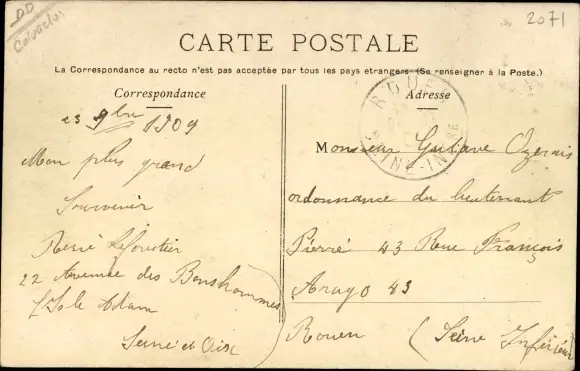 DD
Calvados
2071
CARTE POSTALE
La Correspondance au recto n'est pas acceptée par tous les pays etrangers (Se renseigner à la Poste.)
Correspondance
Adresse
23 9bre 1909
Mon plus grand
Souvenir
René Leforestier
22 Avenue des Bonshommes
L'Isle Adam
Seine et Oise
Monsieur Gustave Ozerais
ordonnance du lieutenant
Pierré 43 Rue François
Arago 43
Rouen (Seine Inférieure
ROUEN
SEINE-INF